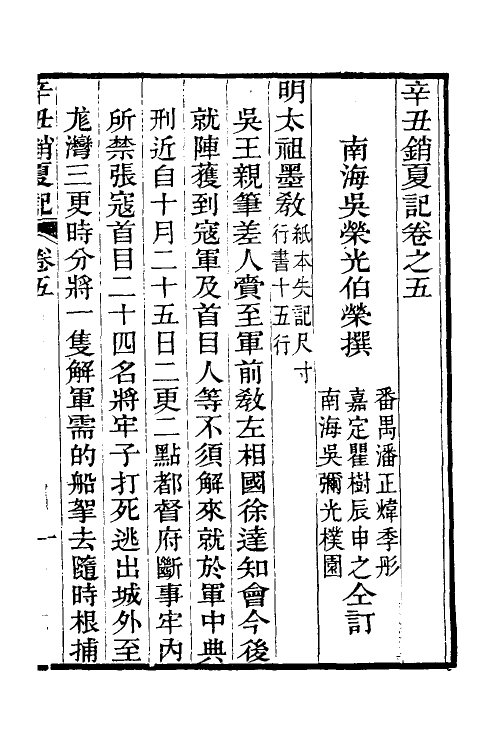 辛丑銷夏記卷之五
南海吳榮光伯榮撰
番禺潘正煒季彤
嘉定瞿樹辰申之仝訂
南海吳彌光樸園
明太祖墨敎
紙本失記尺寸
行書十五行
吳王親筆差人賫至軍前敎左相國徐達知會今後
就陣獲到寇軍及首目人等不須解來就於軍中典
刑近自十月二十五日二更二點都督府斷事牢內
所禁張寇首目二十四名將牢子打死逃出城外至
龙灣三更時分將一隻解軍需的船挐去隨時根捕
辛丑銷夏記
卷五
一